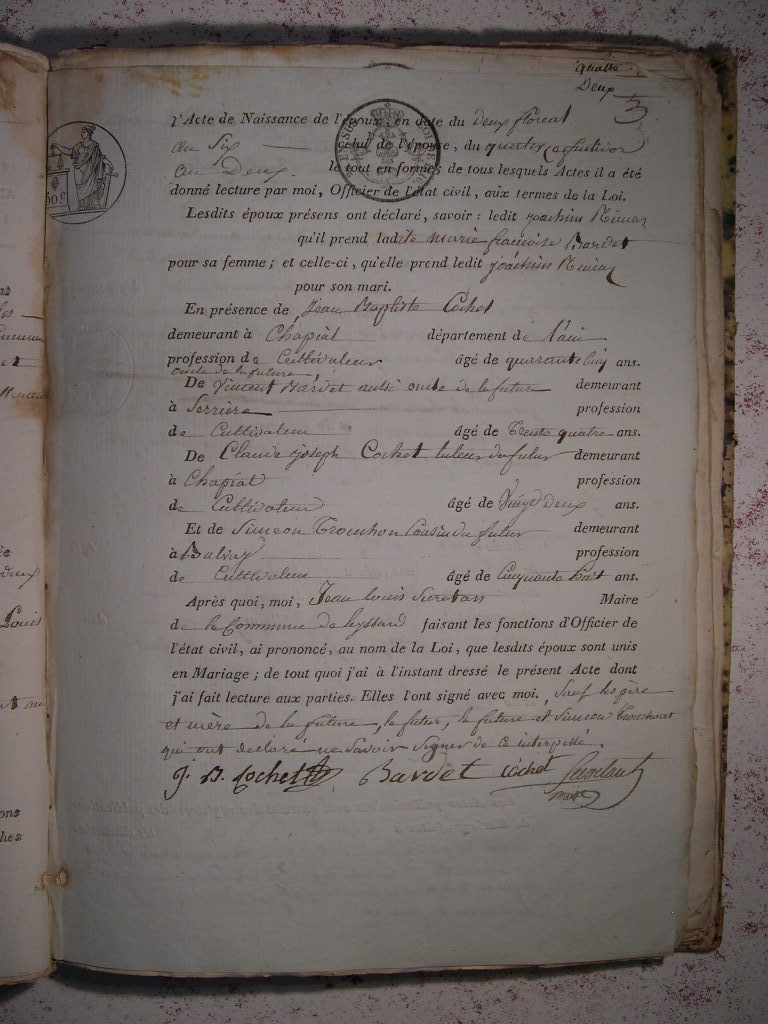 quatre
Deux
3
l'Acte de Naissance de l'époux, en date du deux floreal
an Six — celui de l'épouse, du quatorze
an Deux. le tout en formes, de tous lesquels Actes il a été
donné lecture par moi, Officier de l'état civil, aux termes de la Loi.
Lesdits époux présens ont déclaré, savoir : ledit joachim
qu'il prend ladite marie françoise Bardet
pour sa femme ; et celle-ci, qu'elle prend ledit joachim
pour son mari.
En présence de Jean Baptiste Cochet
demeurant à Chapiat département de l'ain
profession de Cultivateur âgé de quarante cinq ans.
oncle de la future,
De Vincent Bardet aussi oncle de la future demeurant
à Serrière profession
de Cultivateur âgé de Trente quatre ans.
De Claude joseph Cochet tuteur du futur demeurant
à Chapiat profession
de Cultivateur âgé de Vingt Deux ans.
Et de Simeon Trouchon Cousin du futur demeurant
à Balvay profession
de Cultivateur âgé de Cinquante huit ans.
Après quoi, moi, Jean Louis Maire
de la Commune de leyssard faisant les fonctions d'Officier de
l'état civil, ai prononcé, au nom de la Loi, que lesdits époux sont unis
en Mariage ; de tout quoi j'ai à l'instant dressé le présent Acte dont
j'ai fait lecture aux parties. Elles l'ont signé avec moi. Sauf les père
et mère de la future, le futur, la future et Simeon
qui ont déclaré ne Savoir Signer de ce interpellé.
J. B. Cochet Bardet Cochet
maire